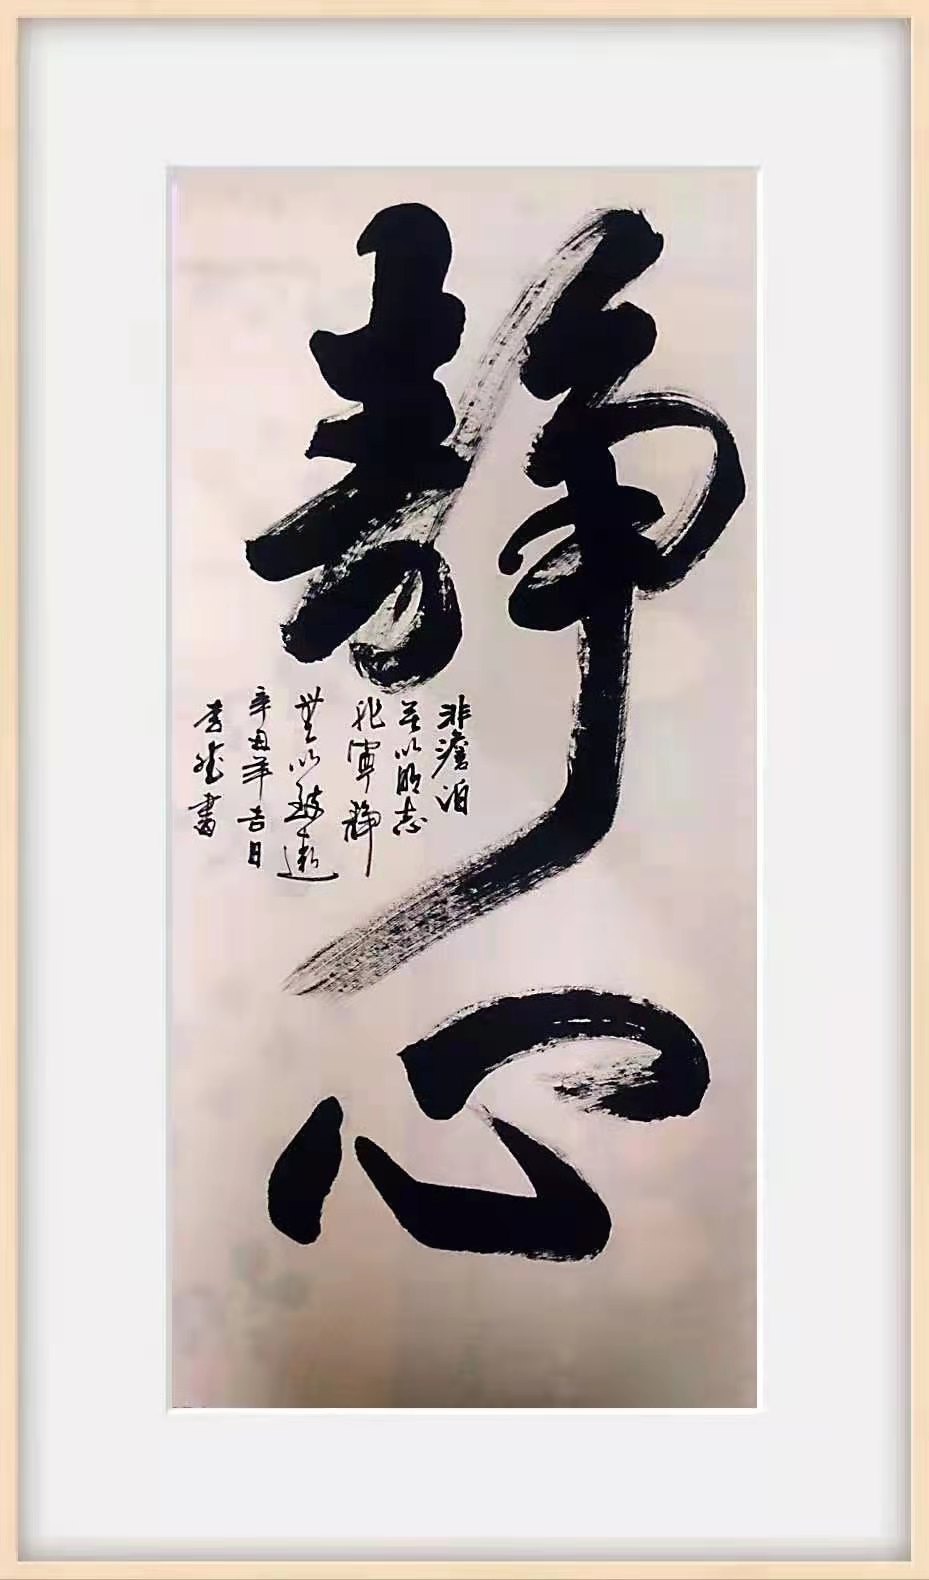 静心
非澹泊
无以明志
非寧静
無以致遠
辛丑年吉日
書